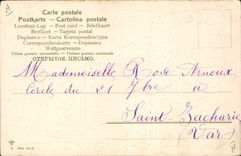 Carte postale
Postkarte - Cartolina postale
Levelező-Lap - Post card - Briefkaart
Brefkort - Tarjeta postal
Dopisnice - Karta Korespondencyjna
Correspondenzkarte - Dopisnica
Weltpostverein
ОТКРЫТОЕ ПИСЬМО.
Mademoiselle Rose Arnoux
Cercle du 21 à
Saint Zacharie
(Var)